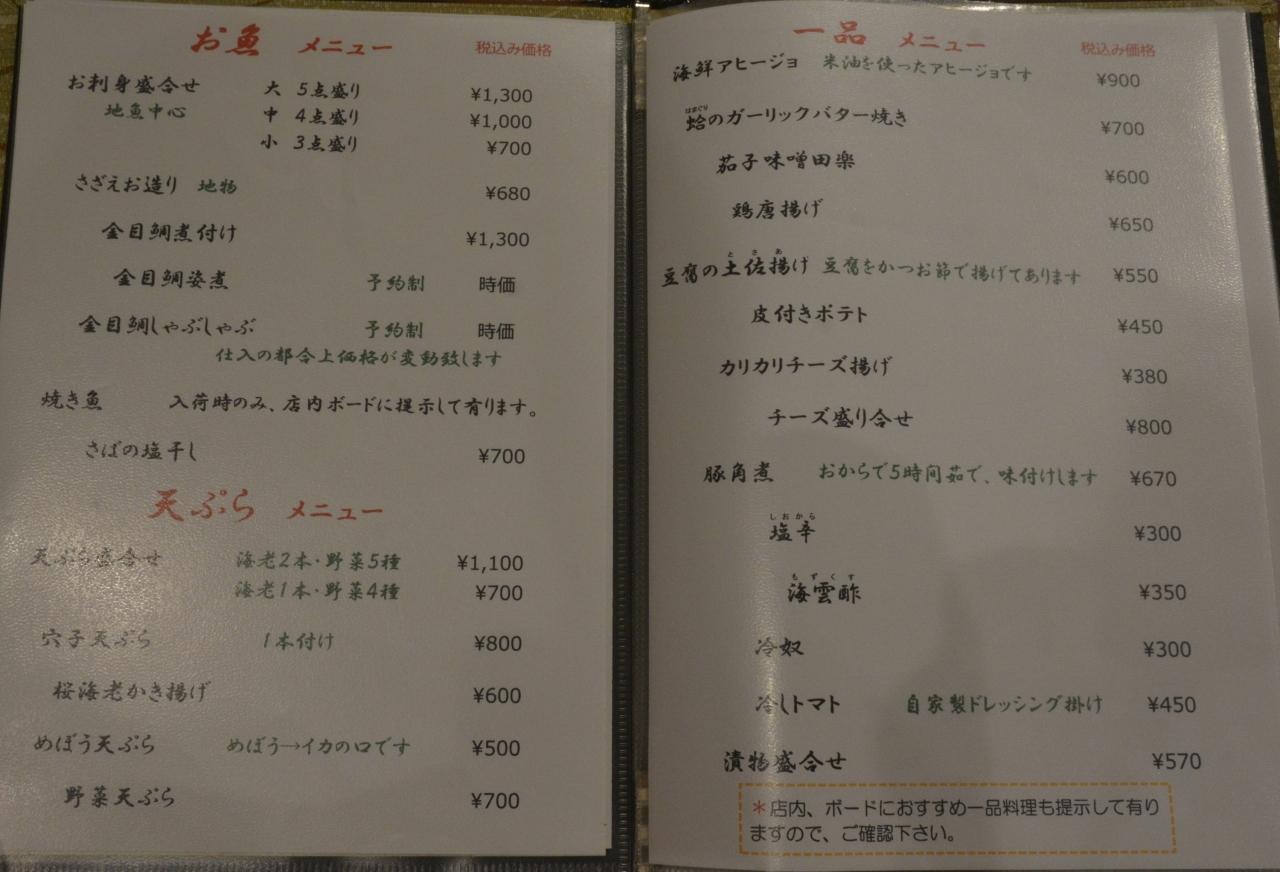 お魚 メニュー 税込み価格
お刺身盛合せ 大 5点盛り ¥1,300
地魚中心 中 4点盛り ¥1,000
小 3点盛り ¥700
さざえお造り 地物 ¥680
金目鯛煮付け ¥1,300
金目鯛姿煮 予約制 時価
金目鯛しゃぶしゃぶ 予約制 時価
仕入の都合上価格が変動致します
焼き魚 入荷時のみ、店内ボードに提示して有ります。
さばの塩干し ¥700
天ぷら メニュー
天ぷら盛合せ 海老2本・野菜5種 ¥1,100
海老1本・野菜4種 ¥700
穴子天ぷら 1本付け ¥800
桜海老かき揚げ ¥600
めぼう天ぷら めぼう→イカの口です ¥500
野菜天ぷら ¥700
一品 メニュー 税込み価格
海鮮アヒージョ 米油を使ったアヒージョです ¥900
はまぐり
蛤のガーリックバター焼き ¥700
茄子味噌田楽 ¥600
鶏唐揚げ ¥650
とさあ
豆腐の土佐揚げ 豆腐をかつお節で揚げてあります ¥550
皮付きポテト ¥450
カリカリチーズ揚げ ¥380
チーズ盛り合せ ¥800
豚角煮 おからで5時間茹で、味付けします ¥670
しおから
塩辛 ¥300
もずくす
海雲酢 ¥350
冷奴 ¥300
冷しトマト 自家製ドレッシング掛け ¥450
漬物盛合せ ¥570
＊店内、ボードにおすすめ一品料理も提示して有り
ますので、ご確認下さい。